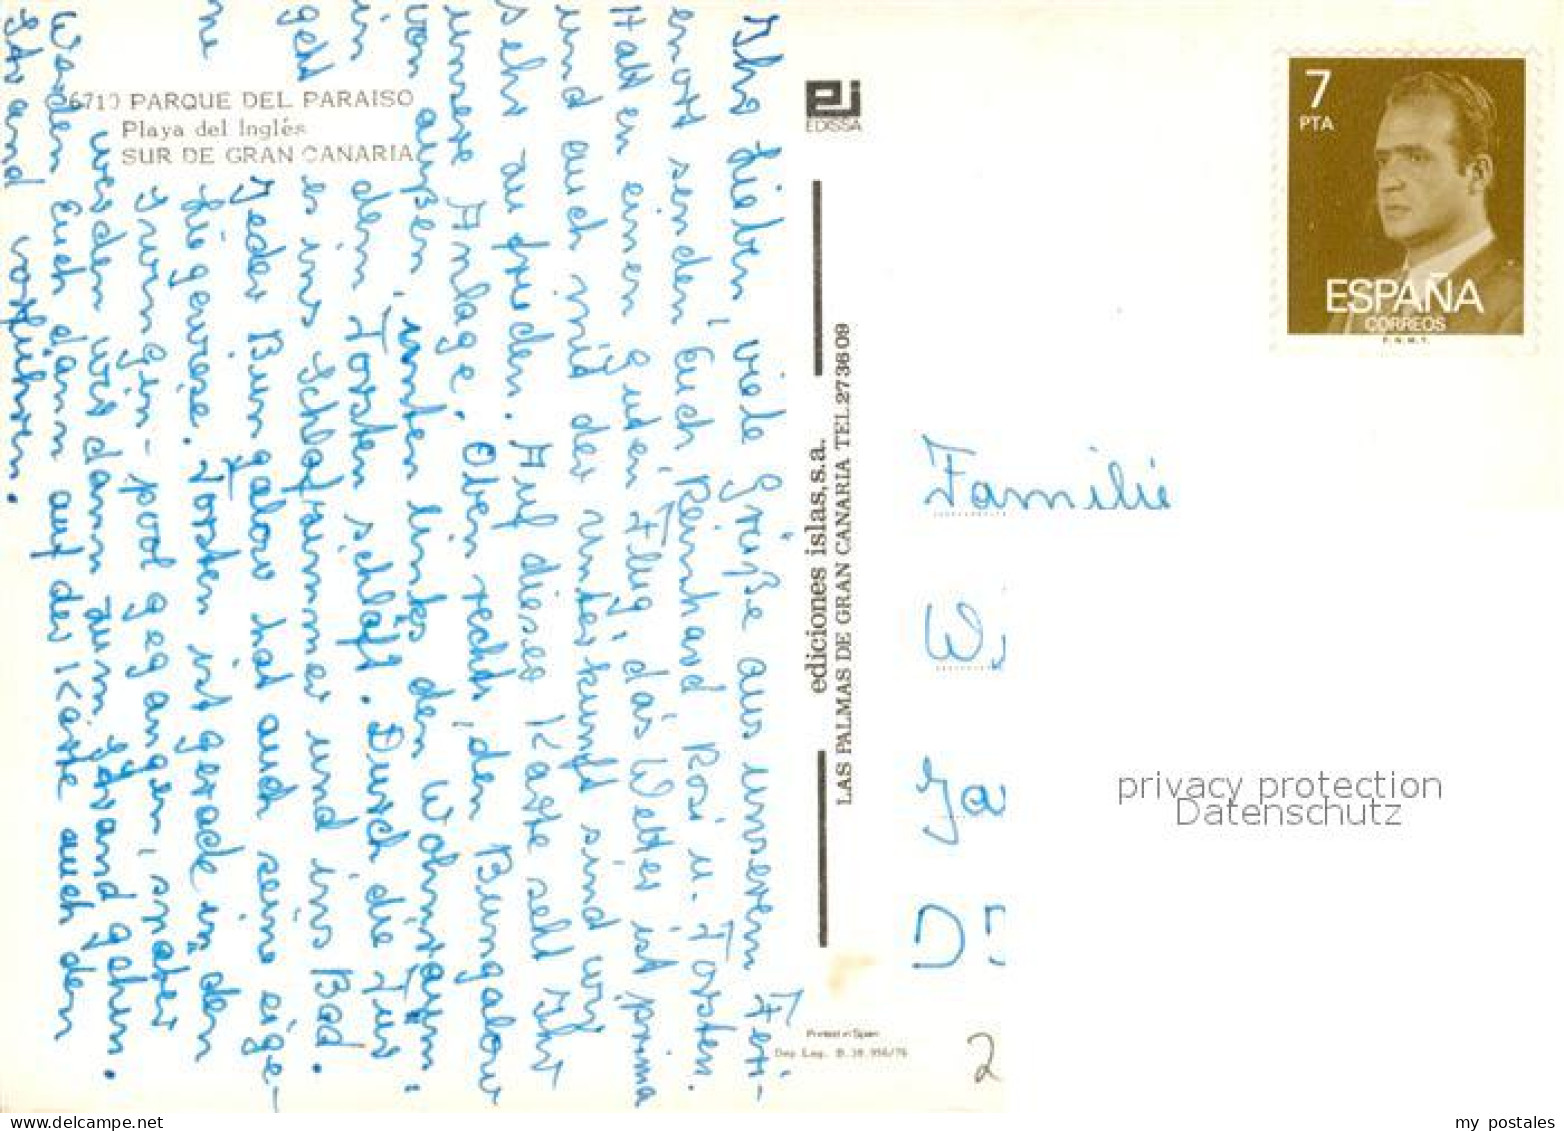 Ihr Lieben, viele Grüße aus unserem Feri-
enort senden Euch Reinhard Rosi u. Torsten.
Hatten einen guten Flug, das Wetter ist prima
und auch mit der unterkunft sind wir
sehr zufrieden. Auf dieser Karte seht ihr
unsere Anlage. Oben rechts, den Bungalow
von außen, unten links den Wohnraum,
in dem Torsten schläft. Durch die Tür
geht es ins Schlafzimmer und ins Bad.
Jeder Bungalow hat auch seine eige-
ne Liegewiese. Torsten ist gerade in den
Swimgin-pool gegangen, später
werden wir dann zum Strand gehen.
Werden Euch dann auf der Karte auch den
Strand vorführen.
6710 PARQUE DEL PARAISO
Playa del Inglés
SUR DE GRAN CANARIA
EDISSA
ediciones islas, s.a.
LAS PALMAS DE GRAN CANARIA TEL. 273609
Printed in Spain
Dep. Leg. B. 38.956/76
7
PTA
ESPAÑA
CORREOS
F.N.M.T.
Familie
W
Ja
D
privacy protection
Datenschutz
2
my postales